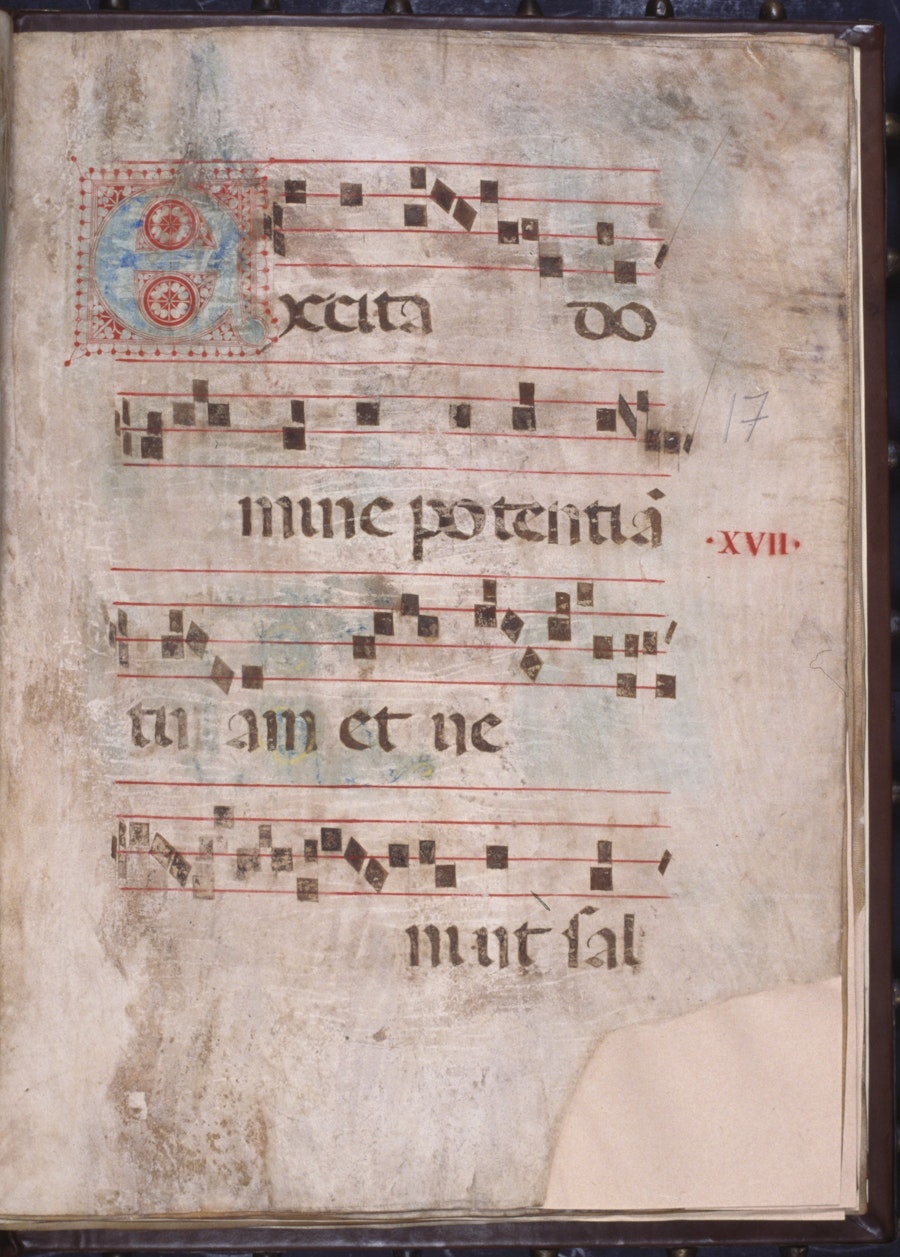 Excita do
mine potentiā
17
·XVII·
tu am et ve
ni ut sal